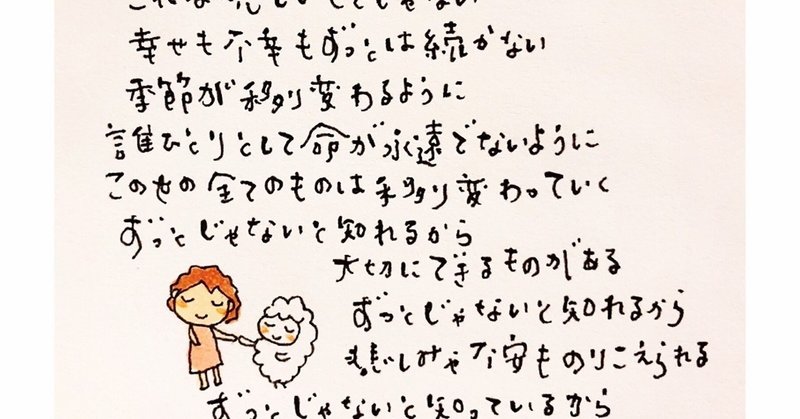 これは悲しいことじゃない
幸せも不幸もずっとは続かない
季節が移り変わるように
誰ひとりとして命が永遠でないように
この世の全てのものは移り変わっていく
ずっとじゃないと知れるから
大切にできるものがある
ずっとじゃないと知れるから
悲しみや不安ものりこえられる
ずっとじゃないと知っているから